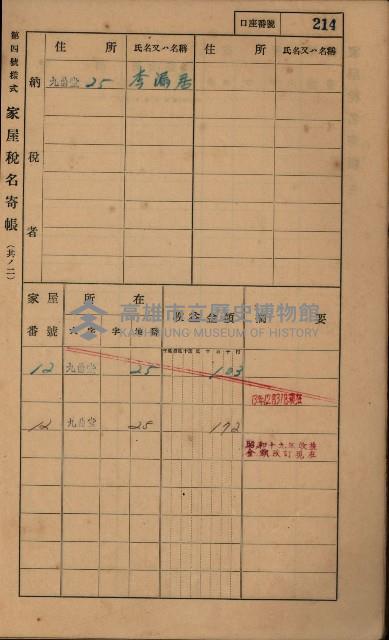 口座番號 214
第四號樣式 家屋稅名寄帳 (共ノ二)
住所 氏名又ハ名稱 住所 氏名又ハ名稱
納稅者
九番堂 25 李漏居
家屋番號 所在 摘要
大字 字 地番
高雄市立歷史博物館
KAOHSIUNG MUSEUM OF HISTORY
12 九番堂 25 103
12 九番堂 25 172
昭和十九年改換
金額改訂現在